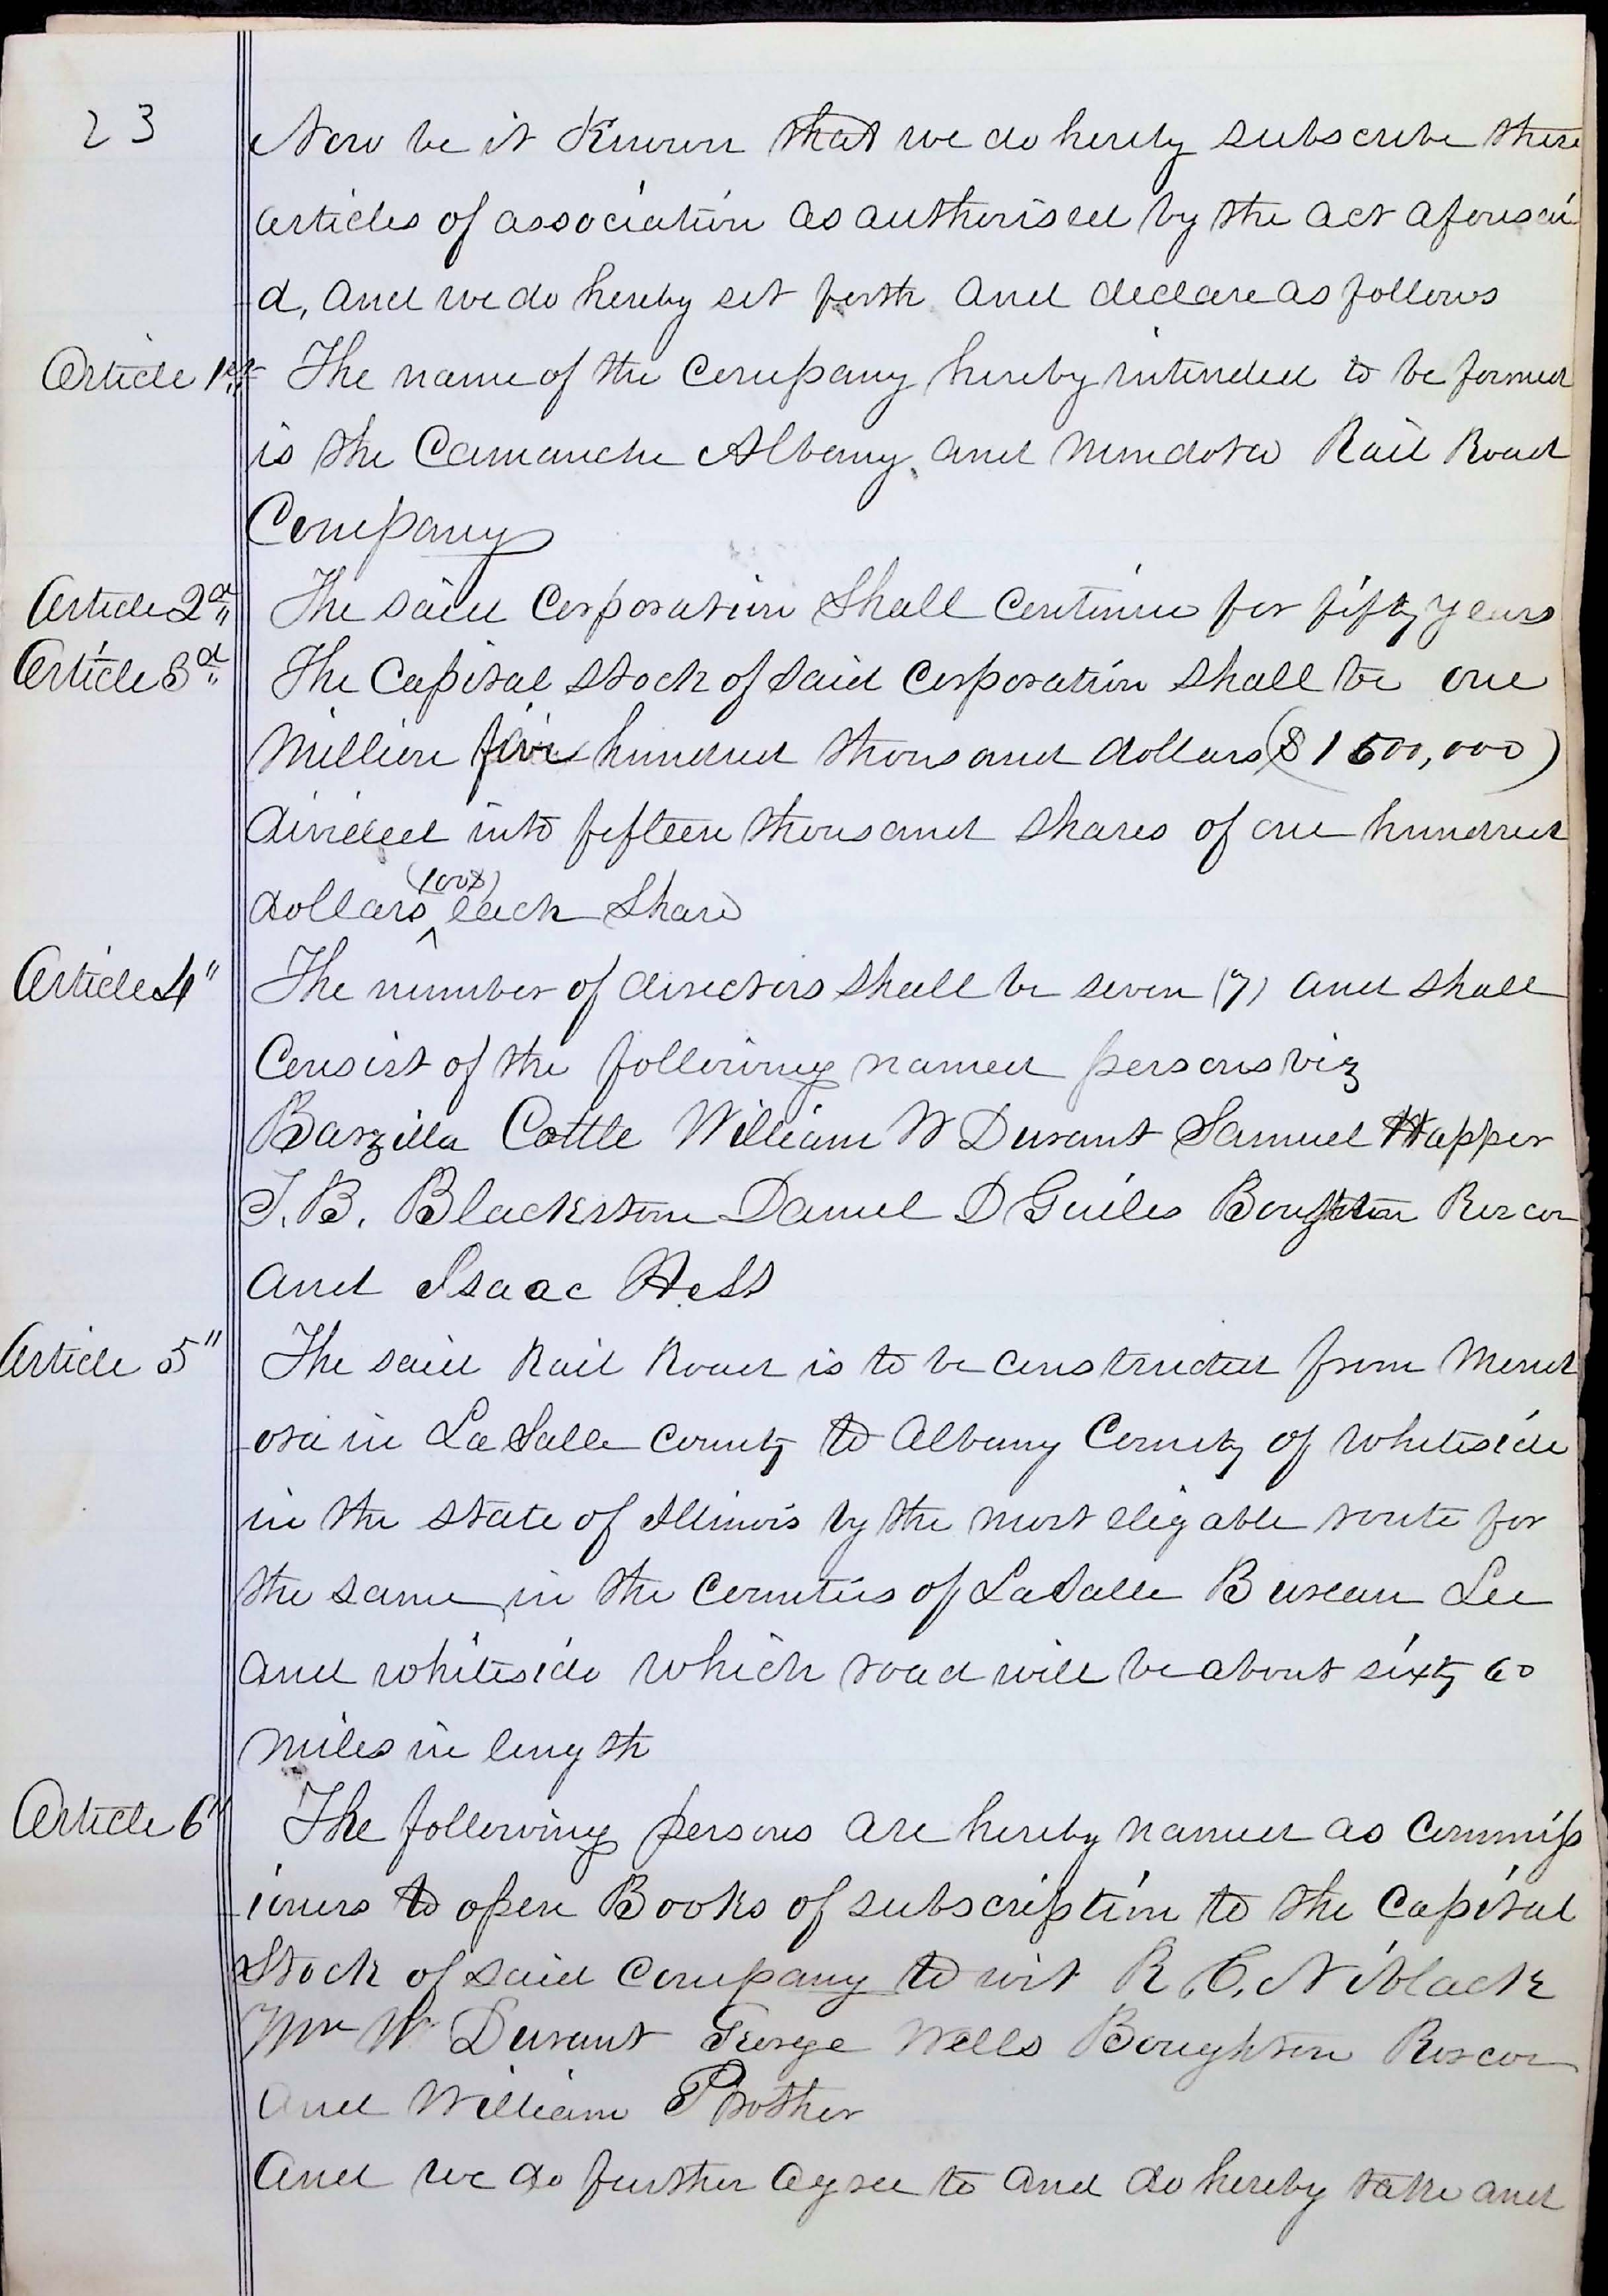 23
Now be it Known that we do hereby subscribe these
articles of association as authorised by the act aforesai
d, and we do hereby set forth and declare as follows
Article 1st The name of the Company hereby intended to be formed
is the Camanche Albany and Mendota Rail Road
Company
Article 2d The said Corporation Shall Continue for fifty years
Article 3d The Capital Stock of Said Corporation shall be one
Million five hundred thousand dollars ($1500,000)
divided into fifteen thousand shares of one hundred
(100$)
dollars ^ each Share
Article 4" The number of directors shall be seven (7) and shall
Consist of the following named persons viz
Barzilla Cottle William W Durant Samuel Happer
T. B. Blackstone Daniel D Guiles Boughton Roscoe
and Isaac Hess
Article 5" The said Rail Road is to be constructed from Mend
ota in La Salle County to Albany County of Whiteside
in the state of Illinois by the most eligable route for
the same in the Counties of LaSalle Bureau Lee
and whiteside which road will be about sixty 60
miles in length
Article 6" The following persons are hereby named as Commiss
ioners to open Books of subscription to the Capital
Stock of said Company to wit R. C. Niblack
Wm W Durant George Wells Boughton Roscoe
and William Prother
And we do further agree to and do hereby take and